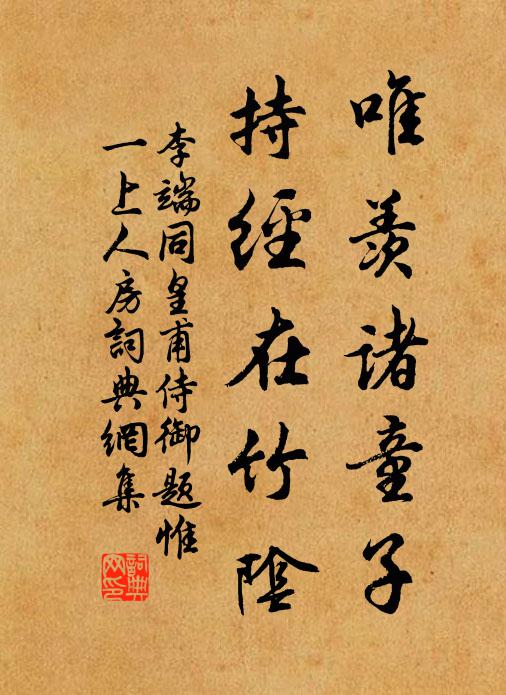 唯羨諸童子
持經在竹陰
李端同皇甫侍御題惟
一上人房詞典網集
詞典网印